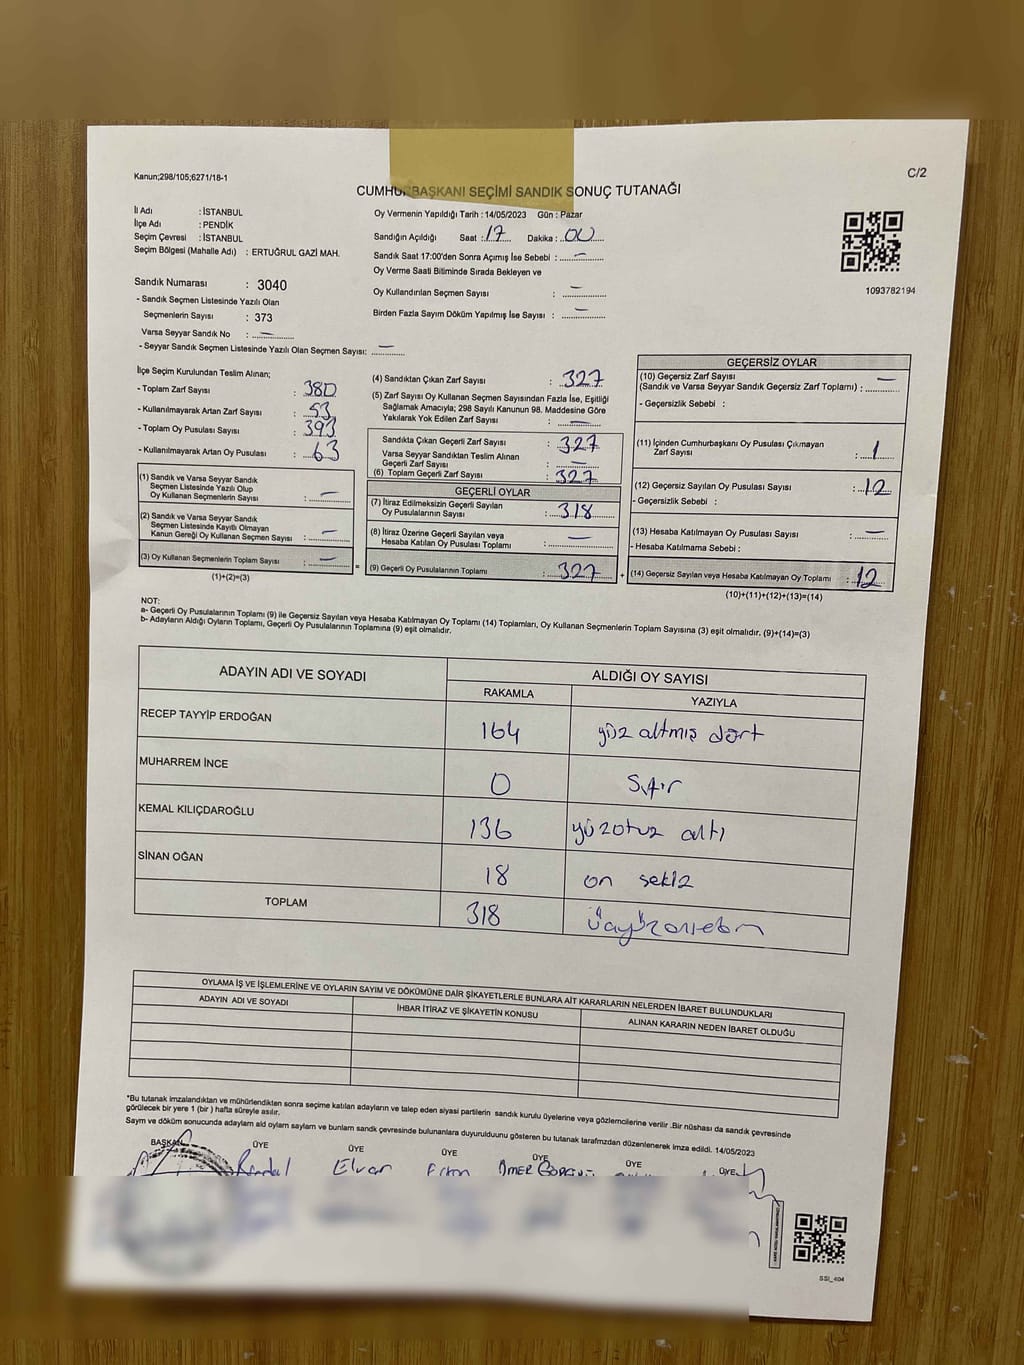 Kanun;298/105;6271/18-1
C/2
CUMHURBAŞKANI SEÇİMİ SANDIK SONUÇ TUTANAĞI
İl Adı : İSTANBUL
İlçe Adı : PENDİK
Seçim Çevresi : İSTANBUL
Seçim Bölgesi (Mahalle Adı) : ERTUĞRUL GAZİ MAH.
Oy Vermenin Yapıldığı Tarih : 14/05/2023 Gün : Pazar
Sandığın Açıldığı Saat : 17 Dakika : 00
Sandık Saat 17:00'den Sonra Açımış İse Sebebi : —
Oy Verme Saati Bitiminde Sırada Bekleyen ve
Oy Kullandırılan Seçmen Sayısı : —
Birden Fazla Sayım Döküm Yapılmış İse Sayısı : —
1093782194
Sandık Numarası : 3040
- Sandık Seçmen Listesinde Yazılı Olan
Seçmenlerin Sayısı : 373
Varsa Seyyar Sandık No : —
- Seyyar Sandık Seçmen Listesinde Yazılı Olan Seçmen Sayısı: —
İlçe Seçim Kurulundan Teslim Alınan;
- Toplam Zarf Sayısı : 380
- Kullanılmayarak Artan Zarf Sayısı : 53
- Toplam Oy Pusulası Sayısı : 393
- Kullanılmayarak Artan Oy Pusulası : 63
(1) Sandık ve Varsa Seyyar Sandık
Seçmen Listesinde Yazılı Olup
Oy Kullanan Seçmenlerin Sayısı : —
(2) Sandık ve Varsa Seyyar Sandık
Seçmen Listesinde Kayıtlı Olmayan
Kanun Gereği Oy Kullanan Seçmen Sayısı : —
(3) Oy Kullanan Seçmenlerin Toplam Sayısı : —
(1)+(2)=(3)
(4) Sandıktan Çıkan Zarf Sayısı : 327
(5) Zarf Sayısı Oy Kullanan Seçmen Sayısından Fazla İse, Eşitliği
Sağlamak Amacıyla; 298 Sayılı Kanunun 98. Maddesine Göre
Yakılarak Yok Edilen Zarf Sayısı : —
Sandıkta Çıkan Geçerli Zarf Sayısı : 327
Varsa Seyyar Sandıktan Teslim Alınan
Geçerli Zarf Sayısı : —
(6) Toplam Geçerli Zarf Sayısı : 327
GEÇERLİ OYLAR
(7) İtiraz Edilmeksizin Geçerli Sayılan
Oy Pusulalarının Sayısı : 318
(8) İtiraz Üzerine Geçerli Sayılan veya
Hesaba Katılan Oy Pusulası Toplamı : —
= (9) Geçerli Oy Pusulalarının Toplamı : 327 +
GEÇERSİZ OYLAR
(10) Geçersiz Zarf Sayısı
(Sandık ve Varsa Seyyar Sandık Geçersiz Zarf Toplamı) : —
- Geçersizlik Sebebi :
(11) İçinden Cumhurbaşkanı Oy Pusulası Çıkmayan
Zarf Sayısı : 1
(12) Geçersiz Sayılan Oy Pusulası Sayısı : 12
- Geçersizlik Sebebi :
(13) Hesaba Katılmayan Oy Pusulası Sayısı : —
- Hesaba Katılmama Sebebi :
(14) Geçersiz Sayılan veya Hesaba Katılmayan Oy Toplamı : 12
(10)+(11)+(12)+(13)=(14)
NOT:
a- Geçerli Oy Pusulalarının Toplamı (9) ile Geçersiz Sayılan veya Hesaba Katılmayan Oy Toplamı (14) Toplamları, Oy Kullanan Seçmenlerin Toplam Sayısına (3) eşit olmalıdır. (9)+(14)=(3)
b- Adayların Aldığı Oyların Toplamı, Geçerli Oy Pusulalarının Toplamına (9) eşit olmalıdır.
ADAYIN ADI VE SOYADI ALDIĞI OY SAYISI
RAKAMLA YAZIYLA
RECEP TAYYİP ERDOĞAN 164 yüz altmış dört
MUHARREM İNCE 0 Sıfır
KEMAL KILIÇDAROĞLU 136 yüzotuz altı
SİNAN OĞAN 18 on sekiz
TOPLAM 318
OYLAMA İŞ VE İŞLEMLERİNE VE OYLARIN SAYIM VE DÖKÜMÜNE DAİR ŞİKAYETLERLE BUNLARA AİT KARARLARIN NELERDEN İBARET BULUNDUKLARI
ADAYIN ADI VE SOYADI İHBAR İTİRAZ VE ŞİKAYETİN KONUSU ALINAN KARARIN NEDEN İBARET OLDUĞU
*Bu tutanak imzalandıktan ve mühürlendikten sonra seçime katılan adayların ve talep eden siyasi partilerin sandık kurulu üyelerine veya gözlemcilerine verilir .Bir nüshası da sandık çevresinde
görülecek bir yere 1 (bir ) hafta süreyle asılır.
Sayım ve döküm sonucunda adayların ald oyların sayların ve bunların sandk çevresinde bulunanlara duyurulduunu gösteren bu tutanak tarafmzdan düzenlenerek imza edildi. 14/05/2023
BAŞKAN ÜYE ÜYE ÜYE ÜYE ÜYE ÜYE
Elvan
SSI_404